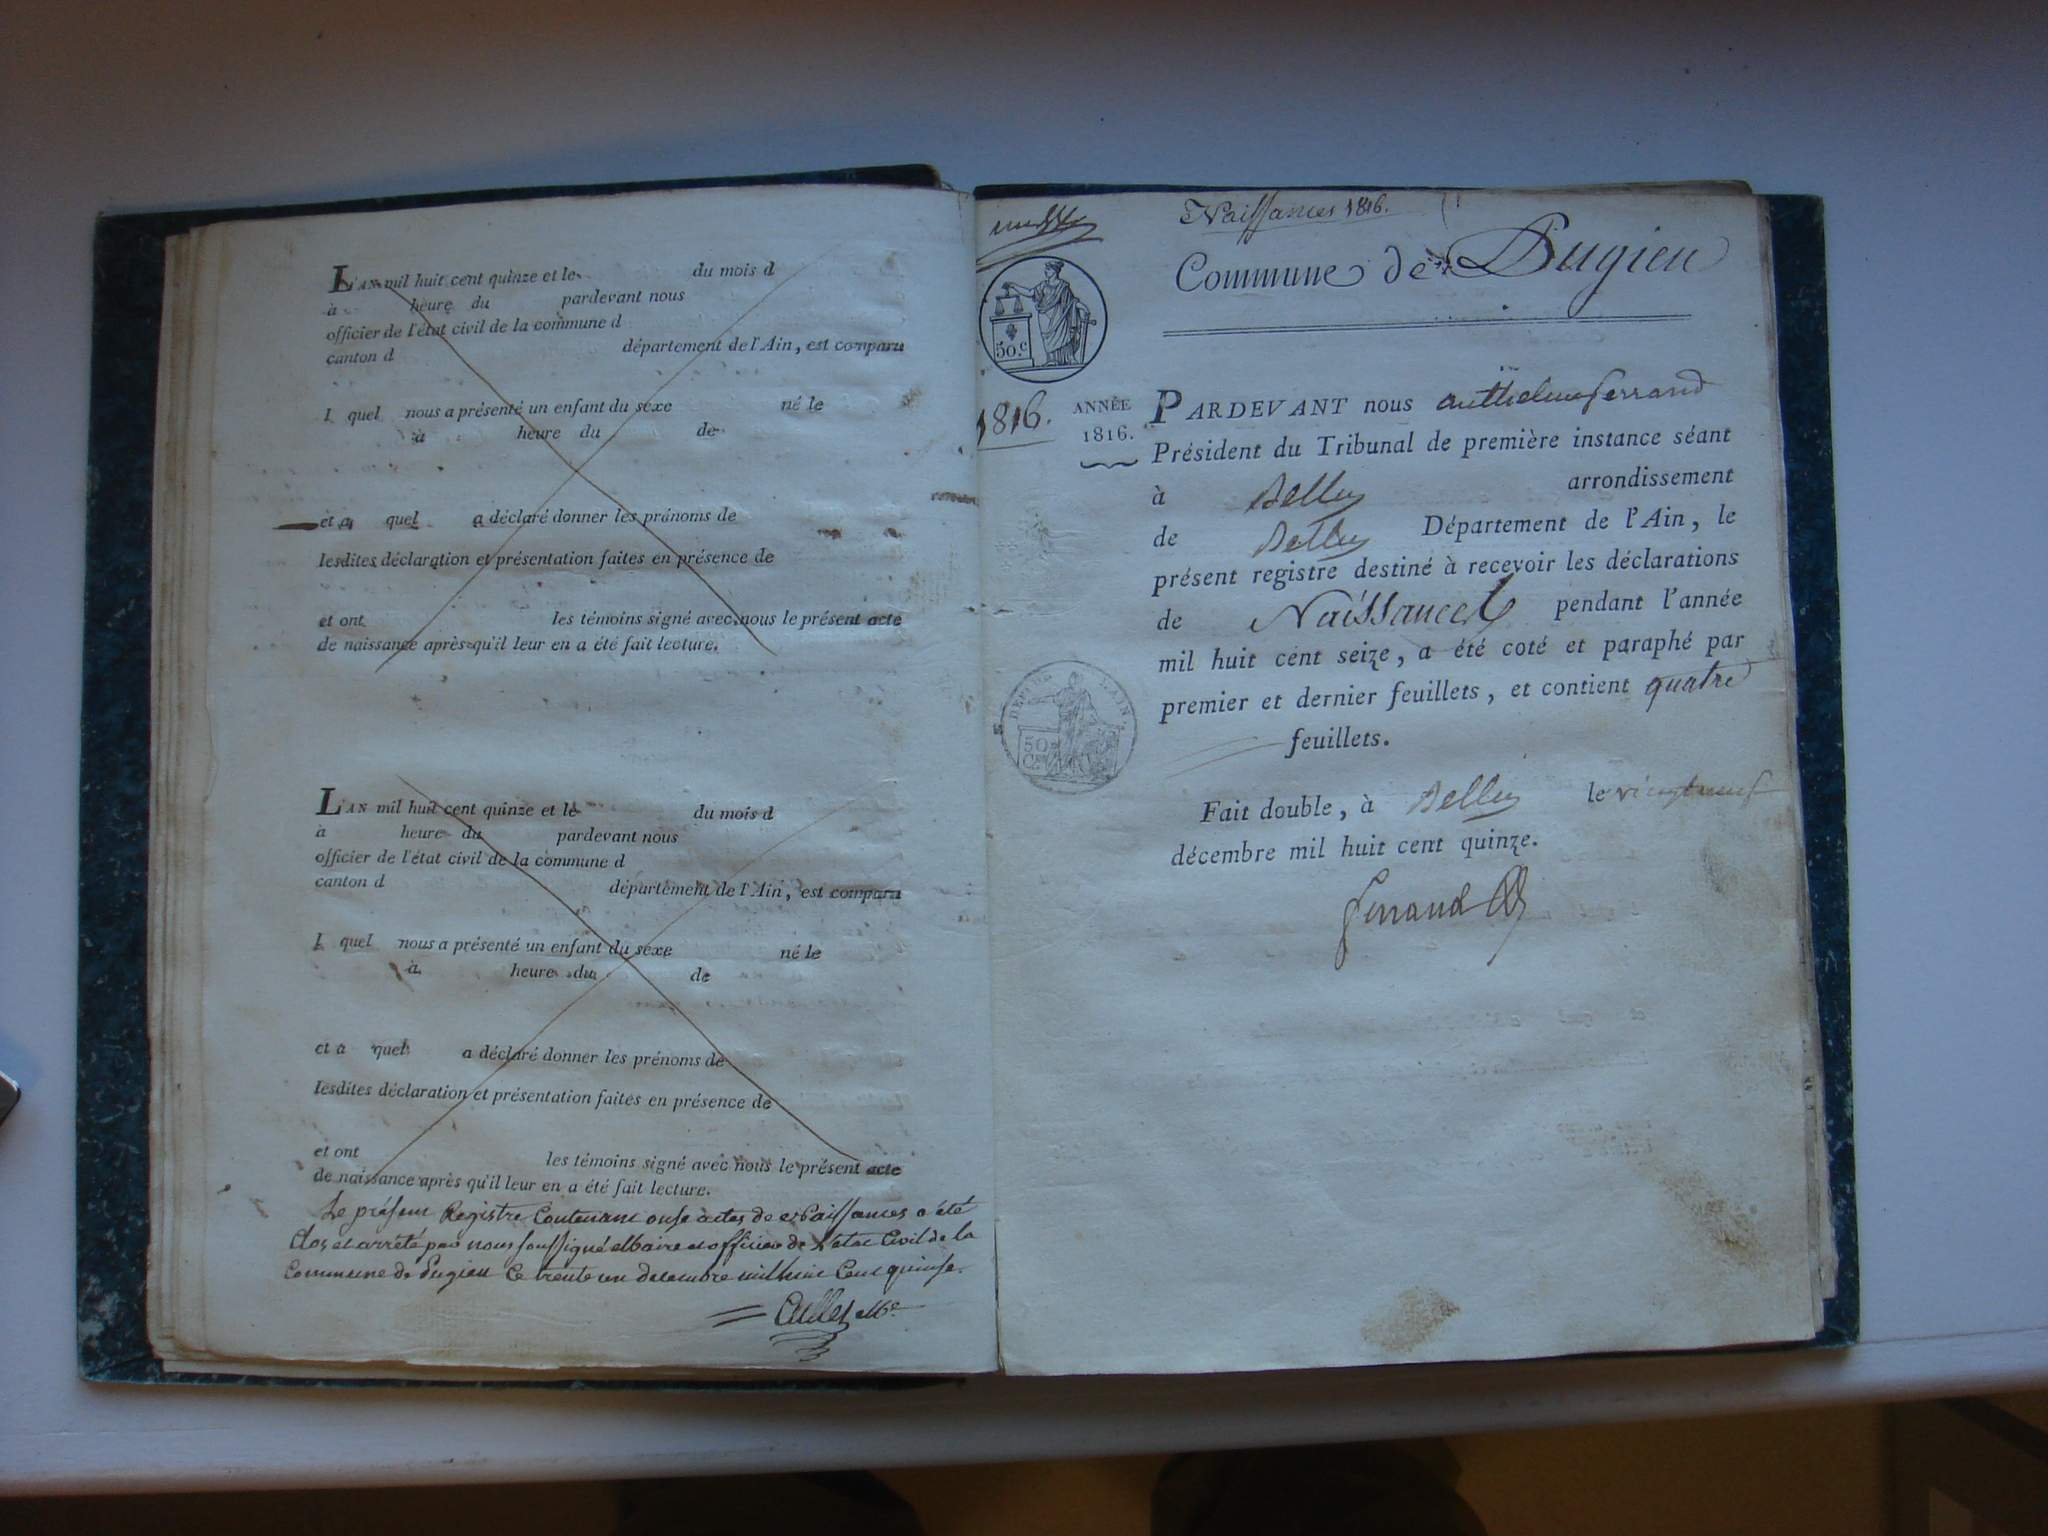 L'AN mil huit cent quinze et le du mois d
à heure du pardevant nous
officier de l'état civil de la commune d
canton d département de l'Ain, est comparu
l quel nous a présenté un enfant du sexe né le
à heure du de
et a quel a déclaré donner les prénoms de
lesdites déclaration et présentation faites en présence de
et ont les témoins signé avec nous le présent acte
de naissance après qu'il leur en a été fait lecture.
L'AN mil huit cent quinze et le du mois d
à heure du pardevant nous
officier de l'état civil de la commune d
canton d département de l'Ain, est comparu
l quel nous a présenté un enfant du sexe né le
à heure du de
et a quel a déclaré donner les prénoms de
lesdites déclaration et présentation faites en présence de
et ont les témoins signé avec nous le présent acte
de naissance après qu'il leur en a été fait lecture.
Le présent Registre Contenant onse actes de Naissances a été
Clos et arrêté par nous soussigné Maire et officier de L'etat Civil de la
Commune de Pugieu Ce trente un decembre mil huit Cent quinse.
Naissances 1816.
Commune de Pugieu
50.c
1816.
ANNÉE
1816.
PARDEVANT nous anthelme ferrand
Président du Tribunal de première instance séant
à Belley arrondissement
de Belley Département de l'Ain, le
présent registre destiné à recevoir les déclarations
de Naissances pendant l'année
mil huit cent seize, a été coté et paraphé par
premier et dernier feuillets, et contient quatre
feuillets.
DEP. DE L'AIN.
50
CES
Fait double, à Belley le vingt neuf
décembre mil huit cent quinze.
ferrand